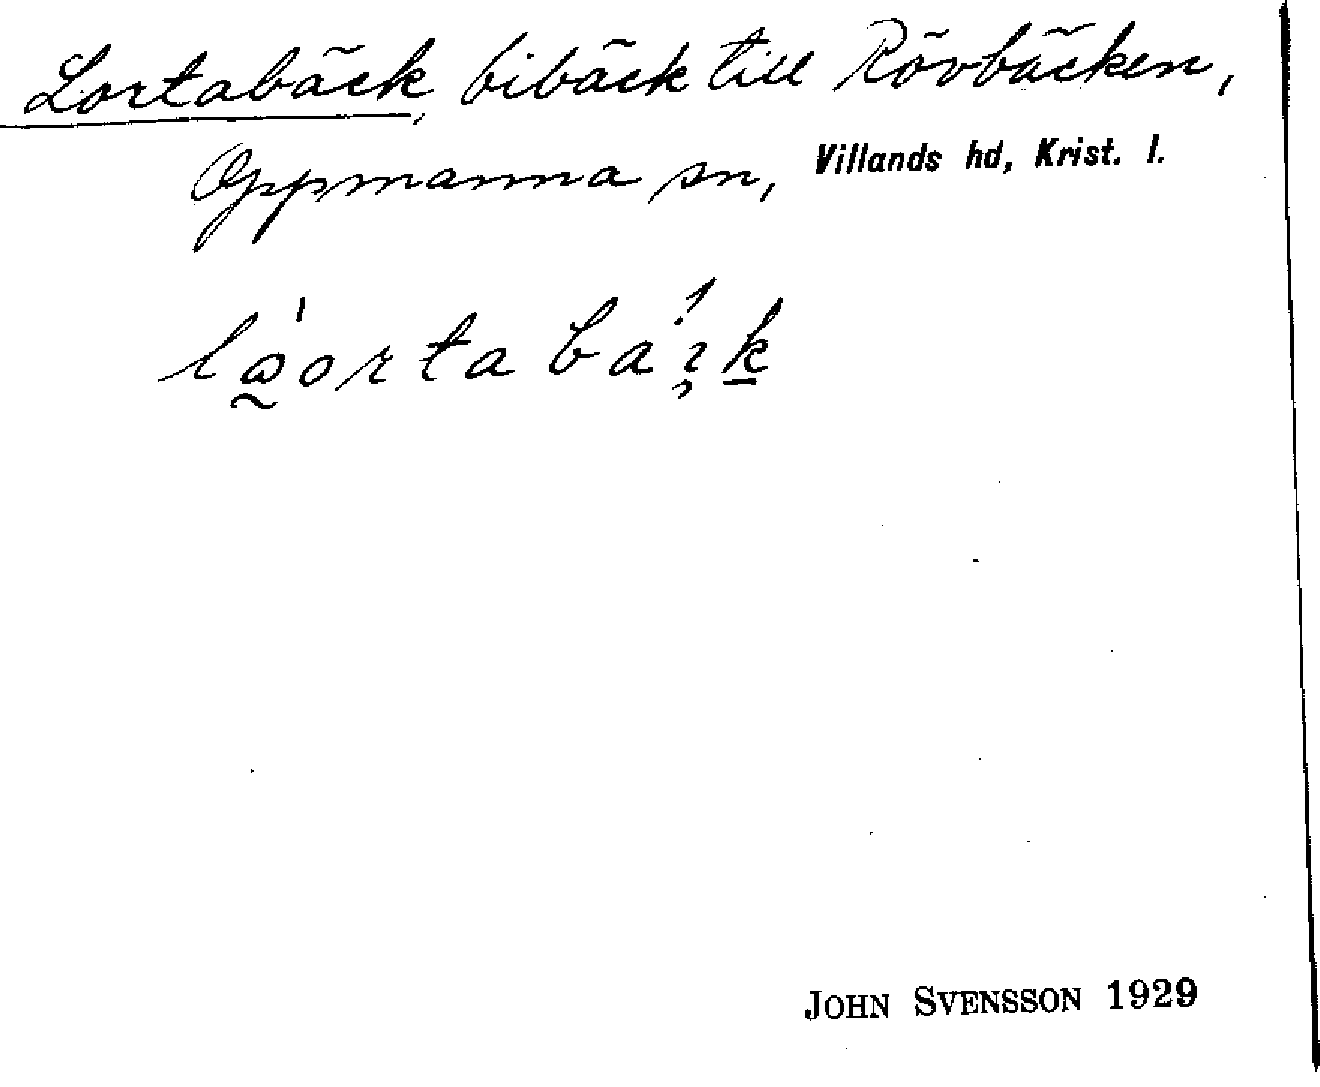 Lortabäck, bibäck till Rövbäcken,
Oppmanna sn, Villands hd, Krist. l.
JOHN SVENSSON 1929